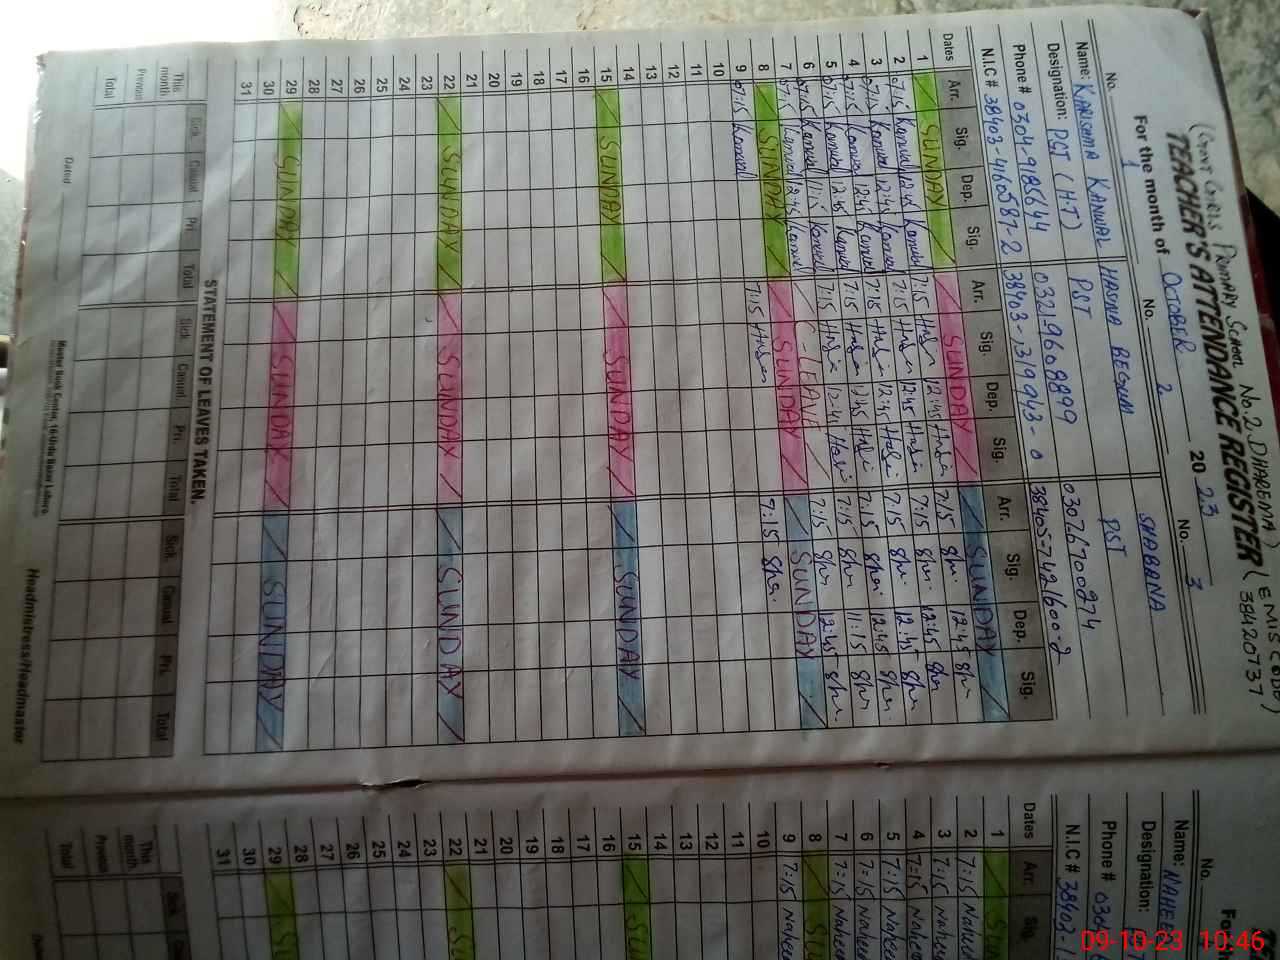 (Govt Girls Primary School No.2. DHAREMA)
TEACHER'S ATTENDANCE REGISTER (EMIS. CODE)
38420737
For the month of OCTOBER 2023
No. 1 No. 2 No. 3
Name: KARISHMA KANWAL HASNA BEGUM SHABANA
Designation: PST (H.T) PST PST
Phone # 0304-9185644 03219608899 03076700274
N.I.C # 38403-4160587-2 38403-,319943-0 38405-7421600-2
Dates Arr. Sig. Dep. Sig. Arr. Sig. Dep. Sig. Arr. Sig. Dep. Sig.
1 SUNDAY SUNDAY SUNDAY
2 07:15 Kanwal 12:45 Kanwal 7:15 12:45 7:15 Shr. 12:45 Shr
3 07:15 Kanwal 12:45 Kanwal 7:15 12:45 7:15 Shr. 12:45 Shr
4 07:15 Kanwal 12:45 Kanwal 7:15 12:45 7:15 Shr. 12:45 Shr
5 07:15 Kanwal 12:45 Kanwal 7:15 12:45 7:15 Shr. 12:45 Shr.
6 07:15 Kanwal 11:15 Kanwal 7:15 7:15 Shr 11:15 Shr
7 07:15 Kanwal 12:45 Kanwal C-LEAVE 7:15 Shr. 12:45 Shr.
8 SUNDAY SUNDAY SUNDAY
9 07:15 Kanwal 7:15 7:15 Shr.
10
11
12
13
14
15 SUNDAY SUNDAY SUNDAY
16
17
18
19
20
21
22 SUNDAY SUNDAY SUNDAY
23
24
25
26
27
28
29 SUNDAY SUNDAY SUNDAY
30
31
STATEMENT OF LEAVES TAKEN.
Sick Casual Pri. Total Sick Casual Pri. Total Sick Casual Pri. Total
This month
Previous
Total
Dated
Master Book Center, 16-Urdu Bazar Lahore.
Headmistress/Headmaster
No.
Name: NAHEE
Designation:
Phone #
N.I.C # 38403-1
Dates Arr.
1 SUN
2 7:15 Naheen
3 7:15 Naheen
4 7:15 Naheen
5 7:15 Naheen
6 7:15 Naheen
7 7:15 Naheen
8 SU
9 7:15 Naheen
10
11
12
13
14
15 SU
16
17
18
19
20
21
22 SU
23
24
25
26
27
28
29 SU
30
31
Sick
This month
Previous
Total
09-10-23 10:46